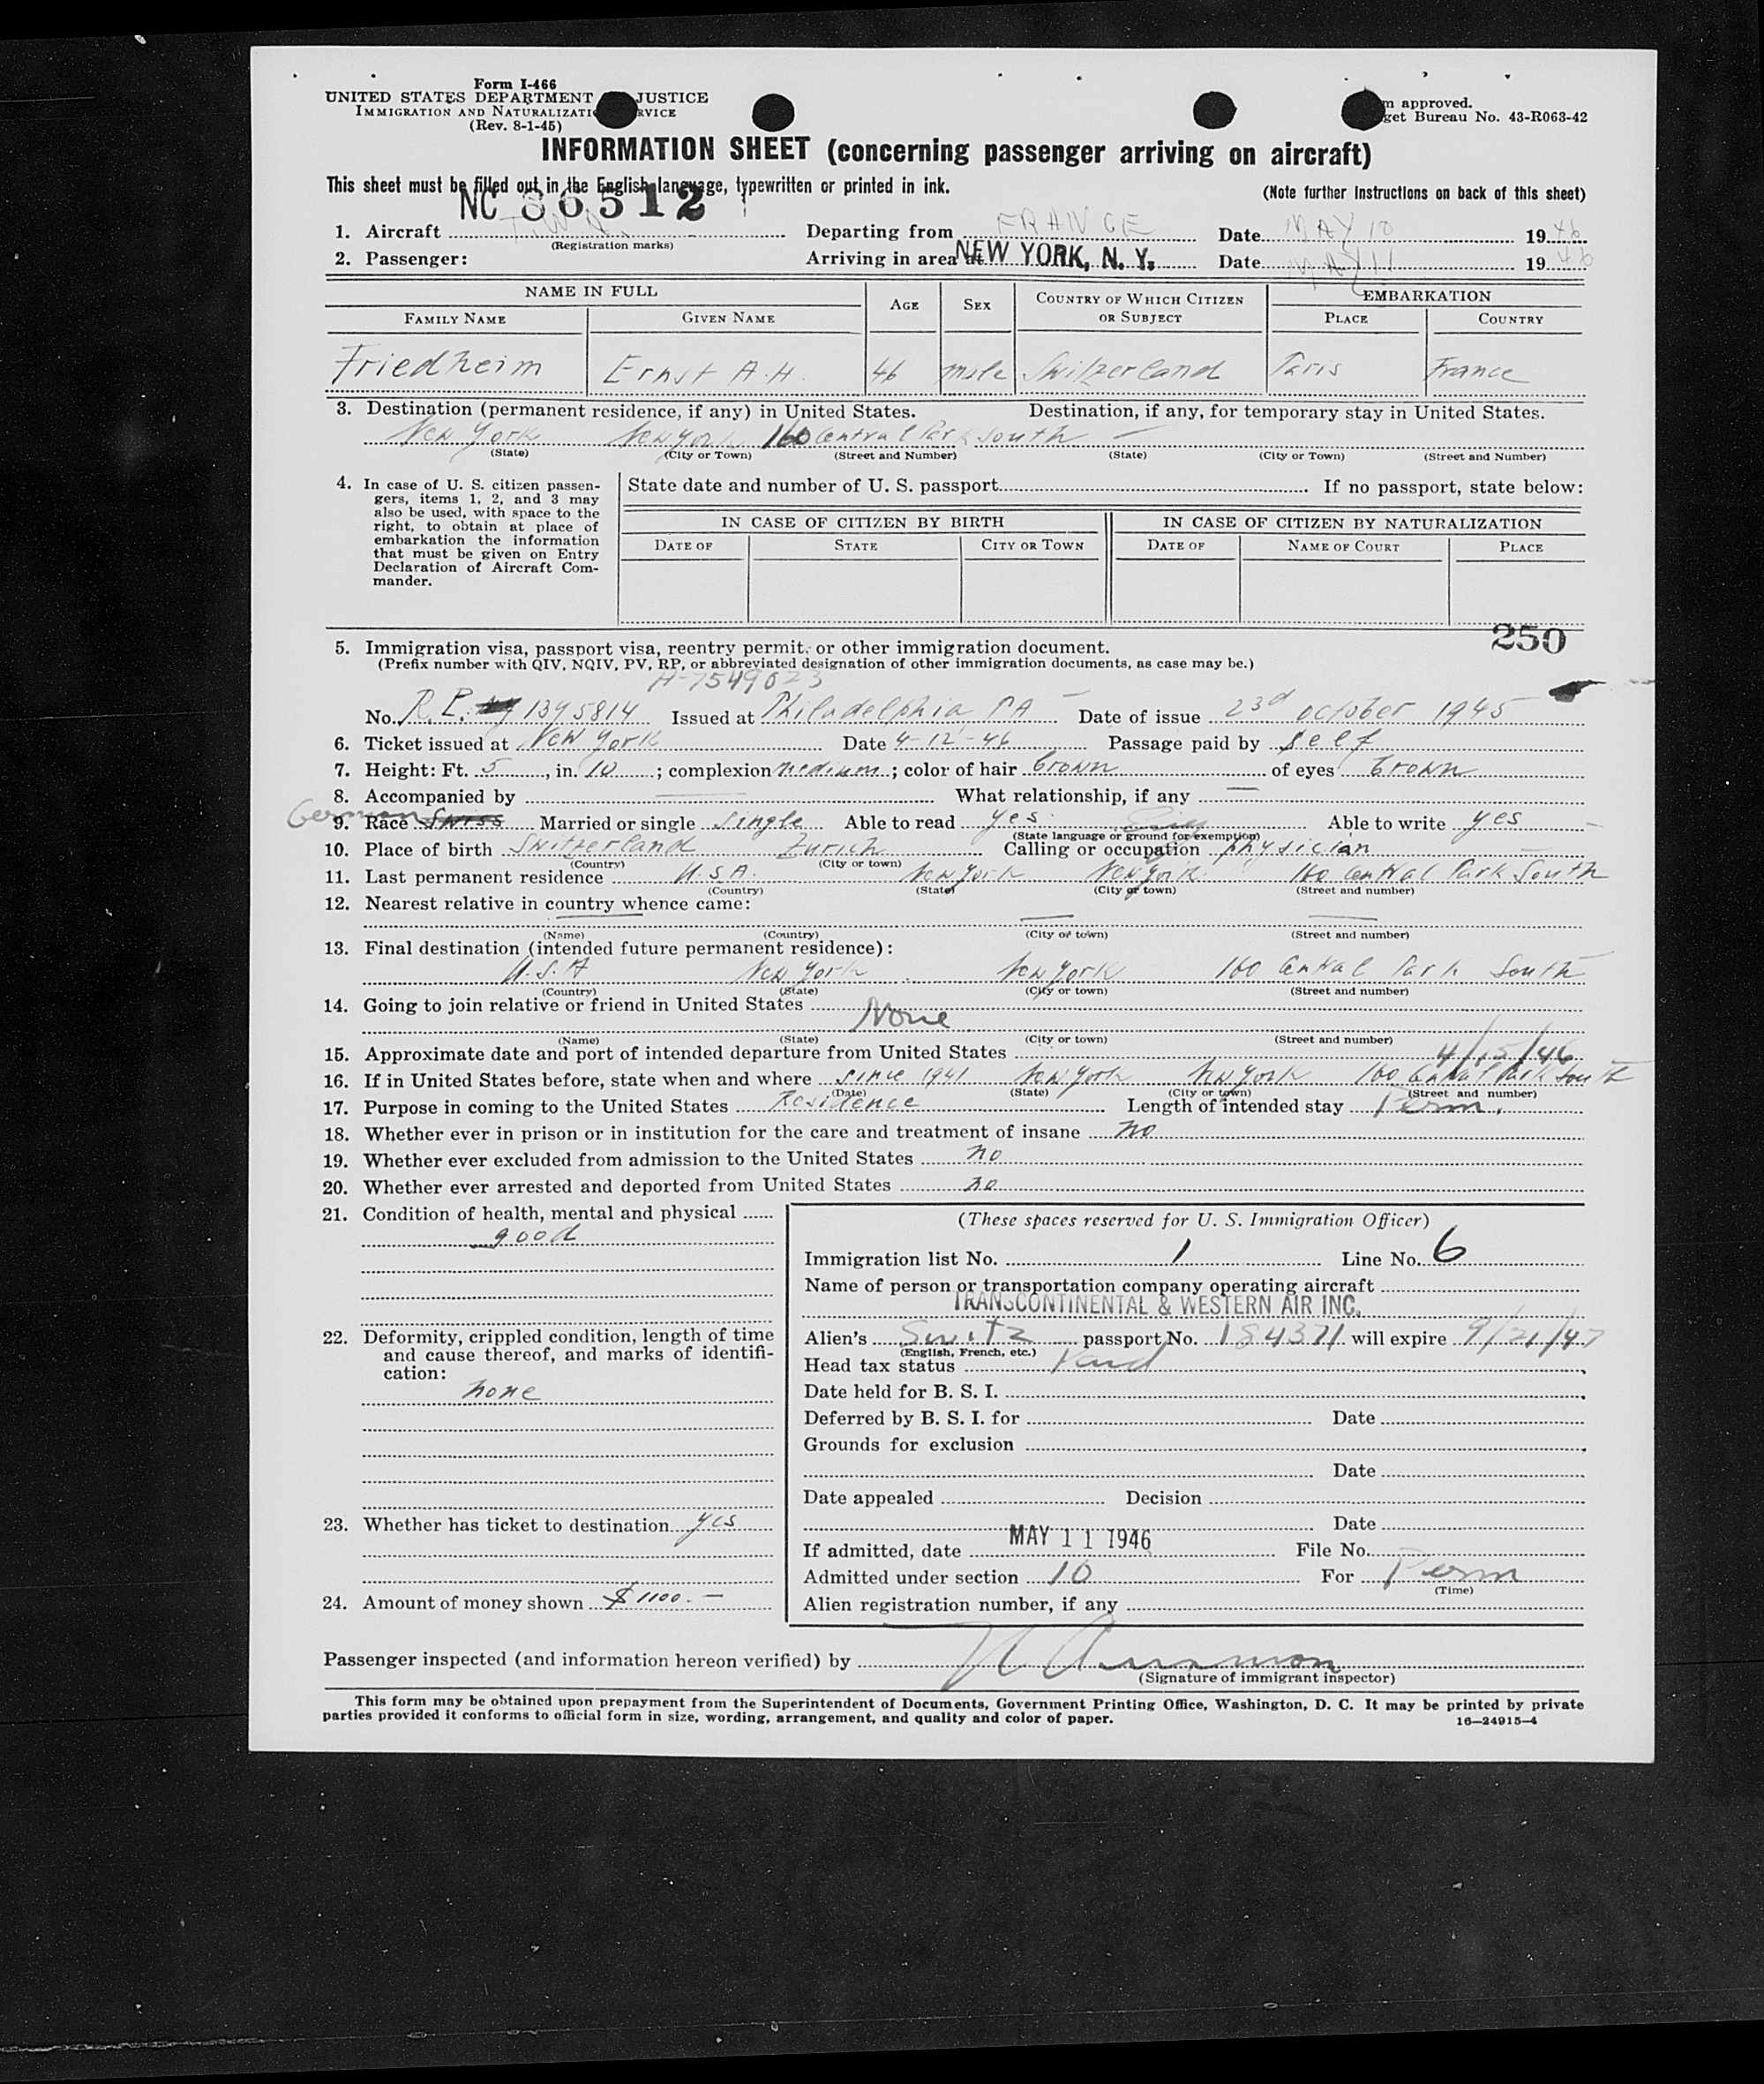 Form I-466
UNITED STATES DEPARTMENT JUSTICE
IMMIGRATION AND NATURALIZATI RVICE
(Rev. 8-1-45)
m approved.
get Bureau No. 43-R063-42
INFORMATION SHEET (concerning passenger arriving on aircraft)
This sheet must be filled out in the English language, typewritten or printed in ink.
(Note further instructions on back of this sheet)
NC 86512
1. Aircraft T.W.A. Departing from FRANCE Date MAY 10 1946
(Registration marks)
2. Passenger: Arriving in area at NEW YORK, N. Y. Date MAY 11 1946
NAME IN FULL AGE SEX COUNTRY OF WHICH CITIZEN OR SUBJECT EMBARKATION
FAMILY NAME GIVEN NAME PLACE COUNTRY
Friedheim Ernst A.H. 46 male Switzerland Paris France
3. Destination (permanent residence, if any) in United States. Destination, if any, for temporary stay in United States.
New York New York 160 Central Park South —
(State) (City or Town) (Street and Number) (State) (City or Town) (Street and Number)
4. In case of U. S. citizen passen-
gers, items 1, 2, and 3 may
also be used, with space to the
right, to obtain at place of
embarkation the information
that must be given on Entry
Declaration of Aircraft Com-
mander.
State date and number of U. S. passport If no passport, state below:
IN CASE OF CITIZEN BY BIRTH IN CASE OF CITIZEN BY NATURALIZATION
DATE OF STATE CITY OR TOWN DATE OF NAME OF COURT PLACE
250
5. Immigration visa, passport visa, reentry permit, or other immigration document.
(Prefix number with QIV, NQIV, PV, RP, or abbreviated designation of other immigration documents, as case may be.)
A-7549023
No. R.P. 1395814 Issued at Philadelphia PA Date of issue 23d october 1945
6. Ticket issued at New York Date 4-12-46 Passage paid by self
7. Height: Ft. 5, in. 10; complexion medium; color of hair brown of eyes brown
8. Accompanied by — What relationship, if any —
German
9. Race Swiss Married or single single Able to read yes Able to write yes
(State language or ground for exemption)
10. Place of birth Switzerland Zurich Calling or occupation physician
(Country) (City or town)
11. Last permanent residence U.S.A. New York New York 160 Central Park South
(Country) (State) (City or town) (Street and number)
12. Nearest relative in country whence came:
(Name) (Country) (City or town) (Street and number)
13. Final destination (intended future permanent residence):
U.S.A New York New York 160 Central Park South
(Country) (State) (City or town) (Street and number)
14. Going to join relative or friend in United States
None
(Name) (State) (City or town) (Street and number)
15. Approximate date and port of intended departure from United States 4/15/46
16. If in United States before, state when and where since 1941 New York New York 160 Central Park South
(Date) (State) (City or town) (Street and number)
17. Purpose in coming to the United States Residence Length of intended stay Perm.
18. Whether ever in prison or in institution for the care and treatment of insane no
19. Whether ever excluded from admission to the United States no
20. Whether ever arrested and deported from United States no
21. Condition of health, mental and physical
good
22. Deformity, crippled condition, length of time
and cause thereof, and marks of identifi-
cation:
none
23. Whether has ticket to destination yes
24. Amount of money shown $1100.—
(These spaces reserved for U. S. Immigration Officer)
Immigration list No. 1 Line No. 6
Name of person or transportation company operating aircraft
TRANSCONTINENTAL & WESTERN AIR INC.
Alien's Switz passport No. 184371 will expire 9/21/47
(English, French, etc.)
Head tax status Paid
Date held for B. S. I.
Deferred by B. S. I. for Date
Grounds for exclusion
Date
Date appealed Decision
Date
If admitted, date MAY 11 1946 File No.
Admitted under section 10 For Perm
(Time)
Alien registration number, if any
Passenger inspected (and information hereon verified) by
(Signature of immigrant inspector)
This form may be obtained upon prepayment from the Superintendent of Documents, Government Printing Office, Washington, D. C. It may be printed by private
parties provided it conforms to official form in size, wording, arrangement, and quality and color of paper.
16—24915-4